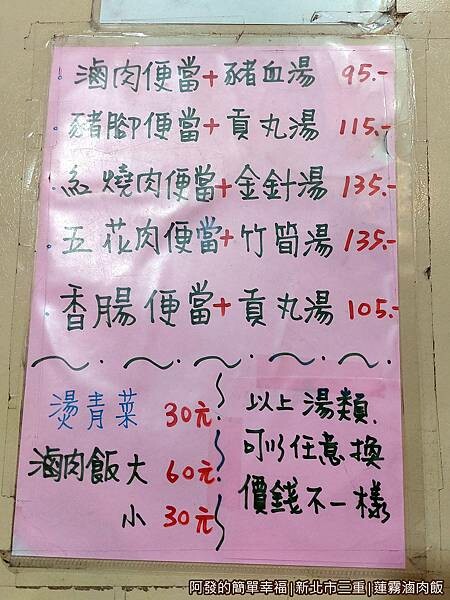 滷肉便當+豬血湯 95.-
豬腳便當+貢丸湯 115.-
紅燒肉便當+金針湯 135.-
五花肉便當+竹筍湯 135.-
香腸便當+貢丸湯 105.-
燙青菜 30元
滷肉飯大 60元
小 30元
以上湯類,
可以任意換
價錢不一樣
阿發的簡單幸福|新北市三重|蓮霧滷肉飯